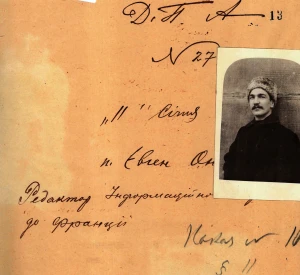 Д.П. А 13
N 27
„11“ Січня
п. Євген Он
Редактор Інформаційно
до Франції
Наказ N 10
§ 11